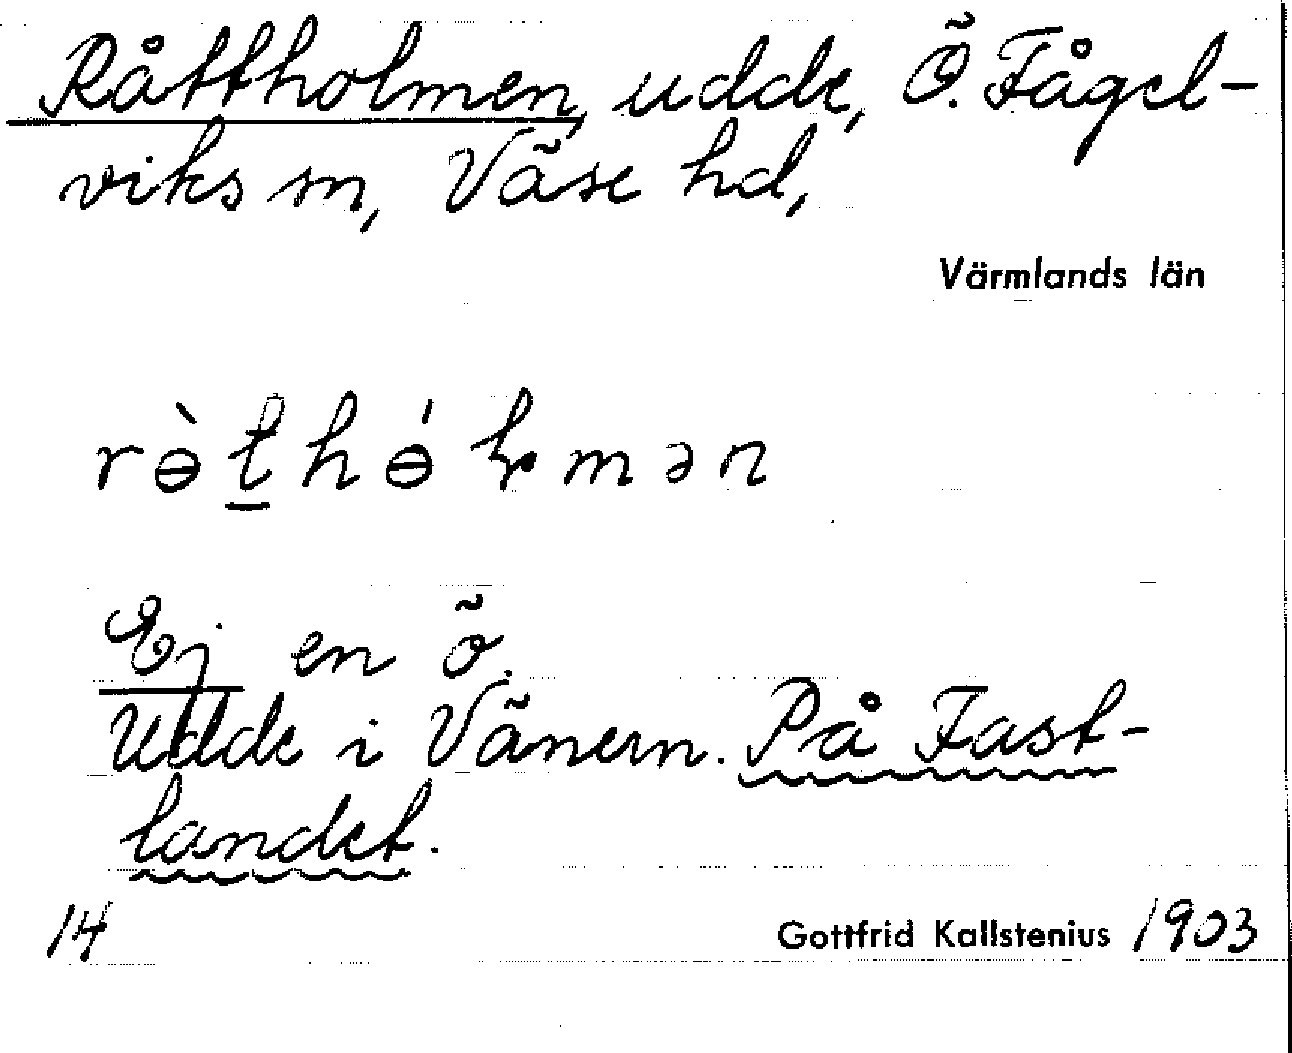 Råttholmen, udde, Ö. Fågel-
viks sn, Väse hd,
Värmlands län
rɵ̀t̲hɵ́ɫmən
Ej en ö.
Udde i Vänern. På Fast-
landet.
14 Gottfrid Kallstenius 1903